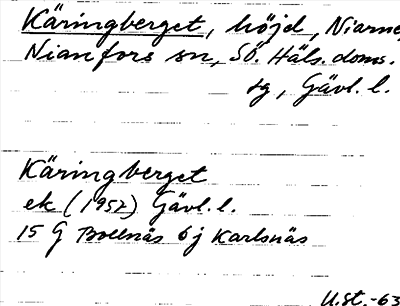 Käringberget, höjd, Niarne
Nianfors sn, Sö. Häls. doms.
sg, Gävl. l.
Käringberget
ek (1952) Gävl. l.
15 G Bollnäs 6 j Karlsnäs
U.st.-63